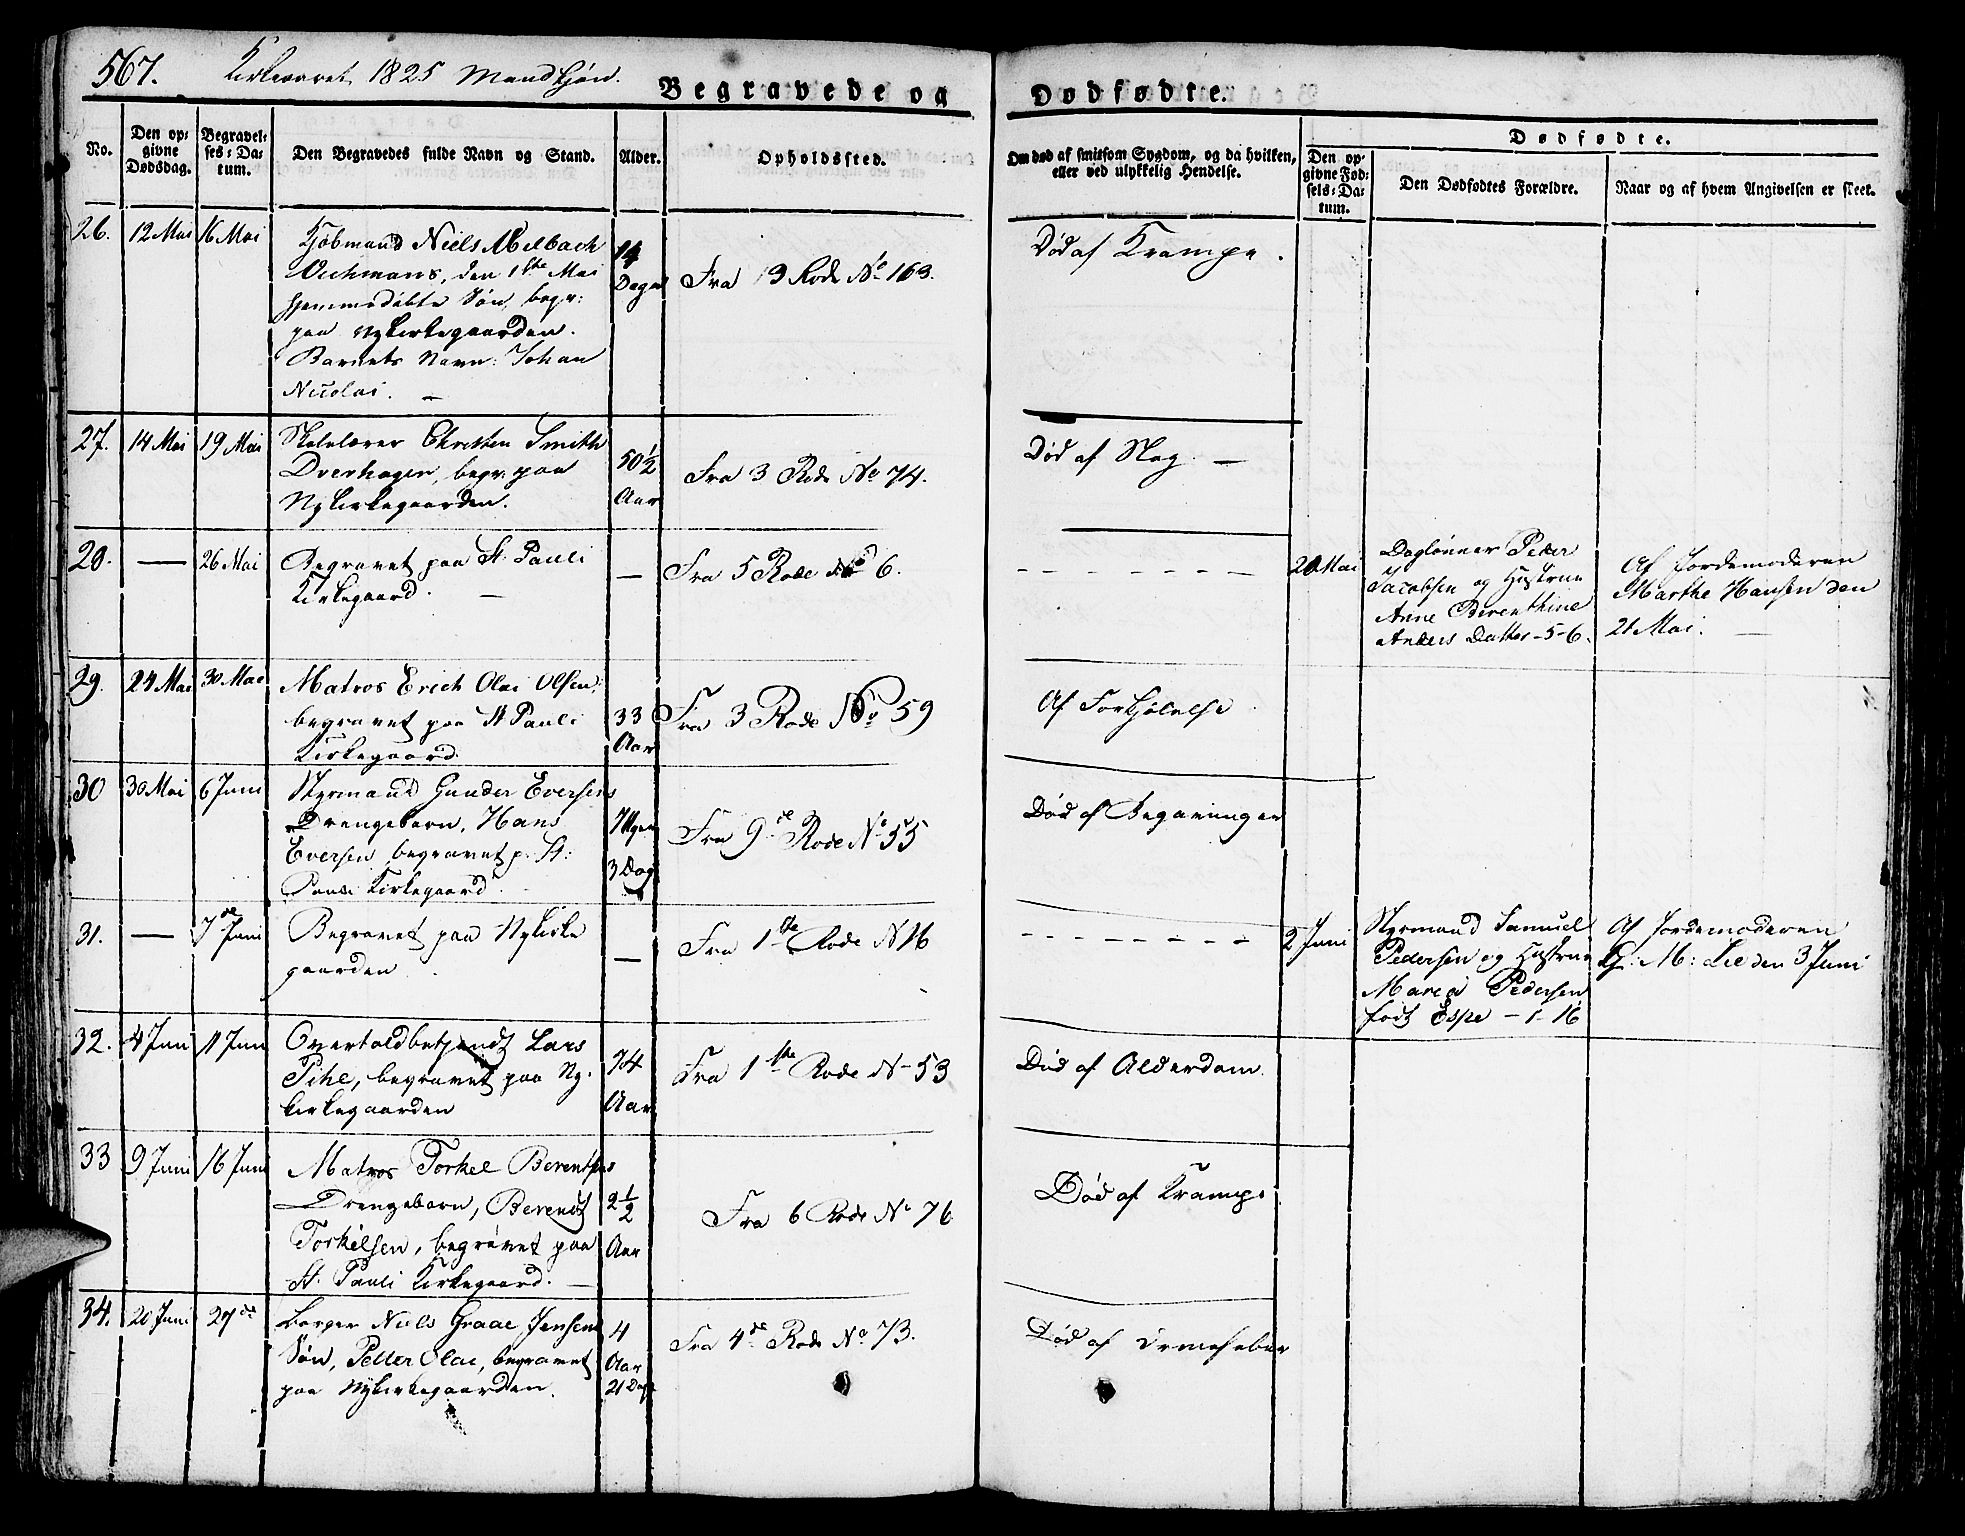 567.
Kirkeaaret 1825 Mandkjøn.
Begravede og
Dødfødte.
No.
Den op-
givne
Dødsdag.
Begravel-
ses-Da-
tum.
Den Begravedes fulde Navn og Stand.
Alder.
Opholdssted.
Om død af smitsom Sygdom, og da hvilken,
eller ved ulykkelig Hendelse.
Dødfødte.
Den op-
givne Fød-
sels-Da-
tum.
Den Dødfødtes Forældre.
Naar og af hvem Angivelsen er skeet.
26.
12 Mai
16 Mai
Kjøbmand Niels Melbach
Wichmans, den 1ste Mai
hjemmedøbte Søn, begr:
paa Nykirkegaarden.
Barnets Navn: Johan
Nicolai. —
14
Dage
Fra 13 Rode No 163.
Død af Krampe.
27.
14 Mai
19 Mai
Skolelærer Christen Smith
Overhagen, begr. paa
Nykirkegaarden.
50 1/2
Aar
Fra 3 Rode No 74.
Død af Slag. —
28.
—
26 Mai
Begravet paa St. Pauli
Kirkegaard. —
—
Fra 5 Rode No 6.
— — — — — —
20 Mai
Daglønner Peder
Jacobsen og Hustrue
Anne Berenthine
Anders Datter - 5 - 6.
Af Jordemoderen
Marthe Hansen den
21 Mai. —
29.
24 Mai
30 Mai
Matros Erich Olai Olsen,
begravet paa St Pauli
Kirkegaard.
33
Aar
Fra 3 Rode No 59
Af Forkjølelse
30
30 Mai
6 Juni
Styrmand Gunder Eversens
Drengebarn, Hans
Eversen, begravet p. St:
Pauli Kirkegaard.
7 Uger
3 Dag
Fra 9de Rode No 55
Død af Begavninger
31.
—
7de Juni
Begravet paa Nykirke
gaarden
—
Fra 1ste Rode N 16
— — — — — —
2 Juni
Styrmand Samuel
Pedersen og Hustrue
Maria Pedersen
født Espe - 1 - 16
Af Jordemoderen
G: M: Lie den 3 Juni
32.
4 Juni
11 Juni
Overtoldbetjendt Lars
Pihl, begravet paa Ny-
kirkegaarden
74
Aar
Fra 1ste Rode N 53
Død af Alderdom.
33
9 Juni
16 Juni
Matros Torkel Berentsens
Drengebarn, Berendt
Torkelsen, begravet paa
St. Pauli Kirkegaard. —
2 1/2
Aar
Fra 6 Rode No 76
Død af Krampe
34.
20 Juni
27de
Borger Niels Graae Jensens
Søn, Petter Olai, begravet
paa Nykirkegaarden.
4
Aar
21 Dag
Fra 4de Rode No 73.
Død af Ormefeber